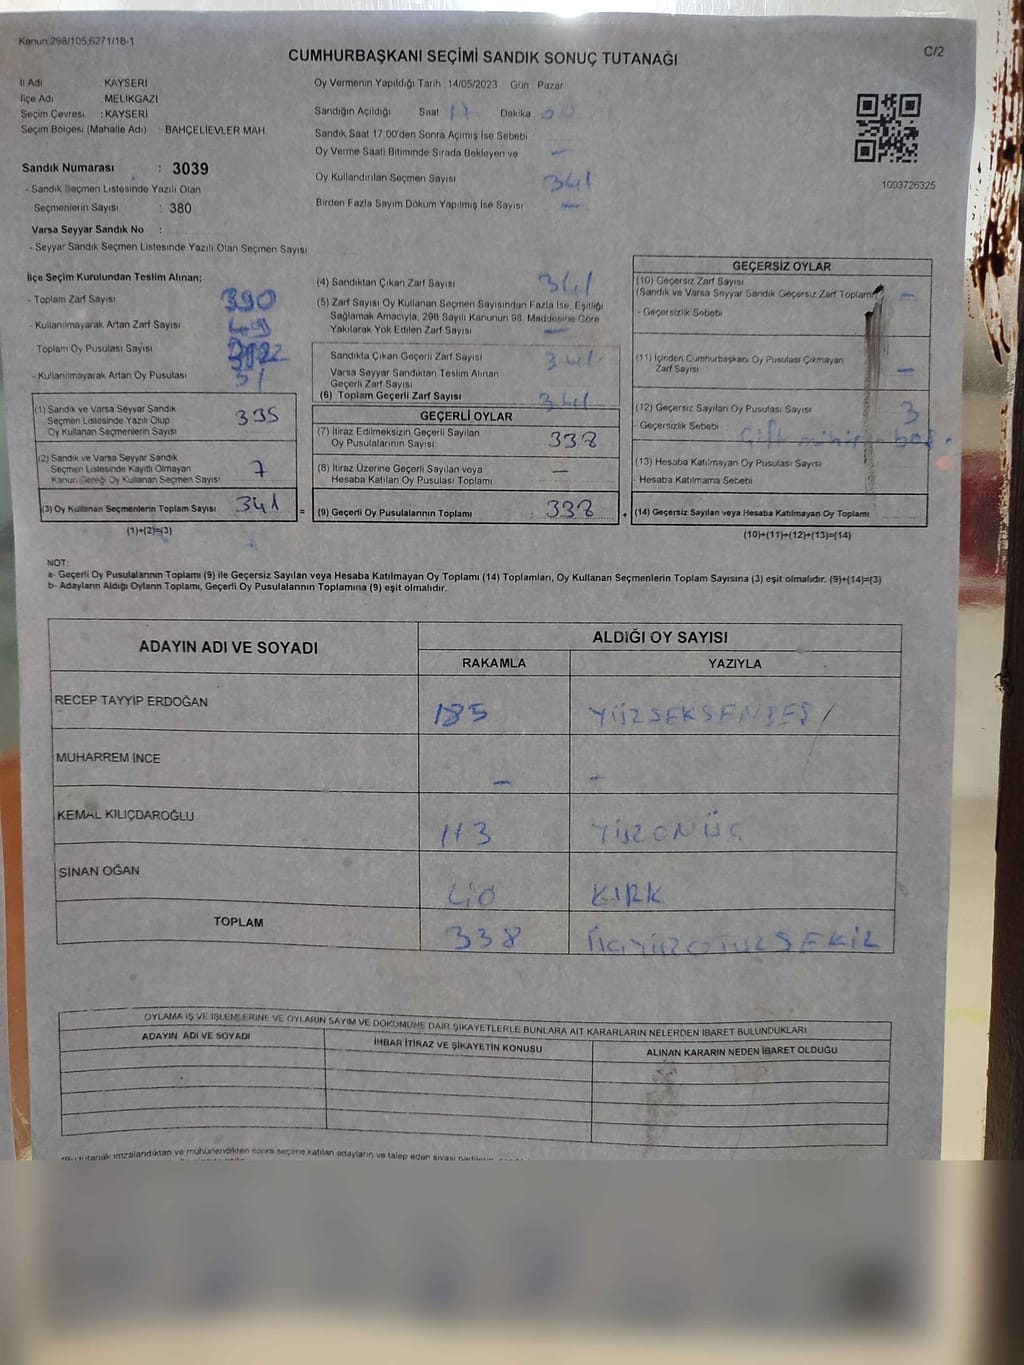 Kanun 298/105,6271/18-1
C/2
CUMHURBAŞKANI SEÇİMİ SANDIK SONUÇ TUTANAĞI
İl Adı : KAYSERİ
İlçe Adı : MELİKGAZİ
Seçim Çevresi : KAYSERİ
Seçim Bölgesi (Mahalle Adı) : BAHÇELİEVLER MAH
Sandık Numarası : 3039
- Sandık Seçmen Listesinde Yazılı Olan
Seçmenlerin Sayısı : 380
Varsa Seyyar Sandık No :
- Seyyar Sandık Seçmen Listesinde Yazılı Olan Seçmen Sayısı
Oy Vermenin Yapıldığı Tarih : 14/05/2023 Gün : Pazar
Sandığın Açıldığı Saat 17 Dakika 00
Sandık Saat 17:00'den Sonra Açımış İse Sebebi
Oy Verme Saati Bitiminde Sırada Bekleyen ve —
Oy Kullandırılan Seçmen Sayısı 341
Birden Fazla Sayım Döküm Yapılmış İse Sayısı —
1093726325
İlçe Seçim Kurulundan Teslim Alınan;
- Toplam Zarf Sayısı 390
- Kullanılmayarak Artan Zarf Sayısı 49
- Toplam Oy Pusulası Sayısı
- Kullanılmayarak Artan Oy Pusulası 51
(1) Sandık ve Varsa Seyyar Sandık
Seçmen Listesinde Yazılı Olup
Oy Kullanan Seçmenlerin Sayısı 335
(2) Sandık ve Varsa Seyyar Sandık
Seçmen Listesinde Kayıtlı Olmayan
Kanun Gereği Oy Kullanan Seçmen Sayısı 7
(3) Oy Kullanan Seçmenlerin Toplam Sayısı 341 =
(1)+(2)=(3)
(4) Sandıktan Çıkan Zarf Sayısı 341
(5) Zarf Sayısı Oy Kullanan Seçmen Sayısından Fazla İse, Eşitliği
Sağlamak Amacıyla, 298 Sayılı Kanunun 98. Maddesine Göre
Yakılarak Yok Edilen Zarf Sayısı —
Sandıkta Çıkan Geçerli Zarf Sayısı 341
Varsa Seyyar Sandıktan Teslim Alınan
Geçerli Zarf Sayısı
(6) Toplam Geçerli Zarf Sayısı 341
GEÇERLİ OYLAR
(7) İtiraz Edilmeksizin Geçerli Sayılan
Oy Pusulalarının Sayısı 338
(8) İtiraz Üzerine Geçerli Sayılan veya
Hesaba Katılan Oy Pusulası Toplamı —
(9) Geçerli Oy Pusulalarının Toplamı : 338 +
GEÇERSİZ OYLAR
(10) Geçersiz Zarf Sayısı
(Sandık ve Varsa Seyyar Sandık Geçersiz Zarf Toplamı) —
- Geçersizlik Sebebi
(11) İçinden Cumhurbaşkanı Oy Pusulası Çıkmayan
Zarf Sayısı —
(12) Geçersiz Sayılan Oy Pusulası Sayısı 3
- Geçersizlik Sebebi Çift mühür
(13) Hesaba Katılmayan Oy Pusulası Sayısı
- Hesaba Katılmama Sebebi
(14) Geçersiz Sayılan veya Hesaba Katılmayan Oy Toplamı
(10)+(11)+(12)+(13)=(14)
NOT:
a- Geçerli Oy Pusulalarının Toplamı (9) ile Geçersiz Sayılan veya Hesaba Katılmayan Oy Toplamı (14) Toplamları, Oy Kullanan Seçmenlerin Toplam Sayısına (3) eşit olmalıdır. (9)+(14)=(3)
b- Adayların Aldığı Oyların Toplamı, Geçerli Oy Pusulalarının Toplamına (9) eşit olmalıdır.
ADAYIN ADI VE SOYADI ALDIĞI OY SAYISI
RAKAMLA YAZIYLA
RECEP TAYYİP ERDOĞAN 185 YÜZSEKSENBEŞ
MUHARREM İNCE — —
KEMAL KILIÇDAROĞLU 113 YÜZONÜÇ
SİNAN OĞAN 40 KIRK
TOPLAM 338 ÜÇYÜZOTUZSEKİZ
OYLAMA İŞ VE İŞLEMLERİNE VE OYLARIN SAYIM VE DÖKÜMÜNE DAİR ŞİKAYETLERLE BUNLARA AİT KARARLARIN NELERDEN İBARET BULUNDUKLARI
ADAYIN ADI VE SOYADI İHBAR İTİRAZ VE ŞİKAYETİN KONUSU ALINAN KARARIN NEDEN İBARET OLDUĞU
tutanak imzalandıktan ve mühürlendikten sonra seçime katılan adayların ve talep eden siyasi